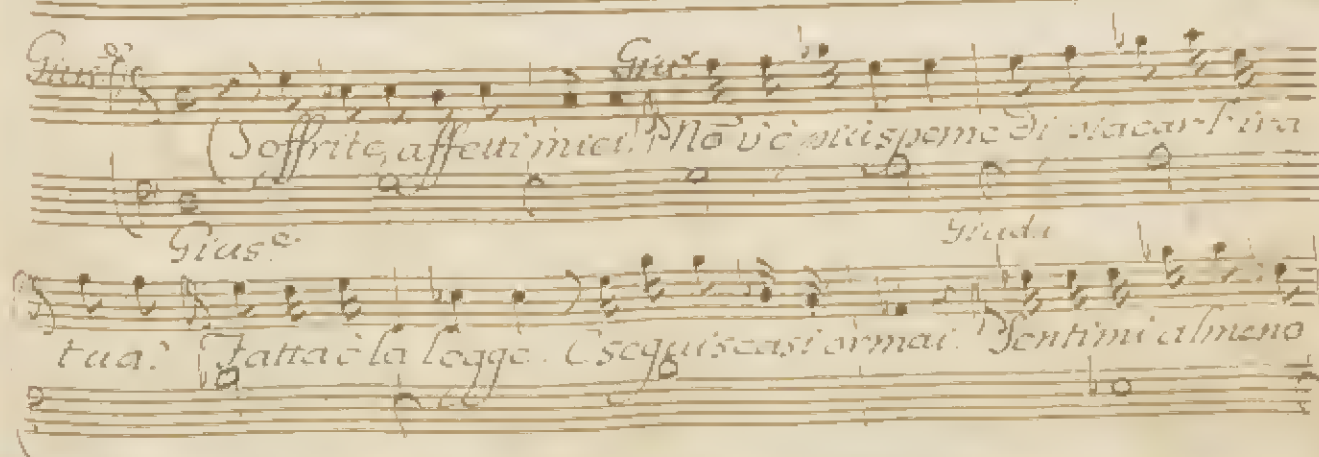 Gius.e Giu.a
(Soffrite, affetti miei.) Nō v'è piu speme di placar l'ira
Gius.e Giuda
tua? Fatta è la legge. Eseguiscasi ormai. Sentimi almeno